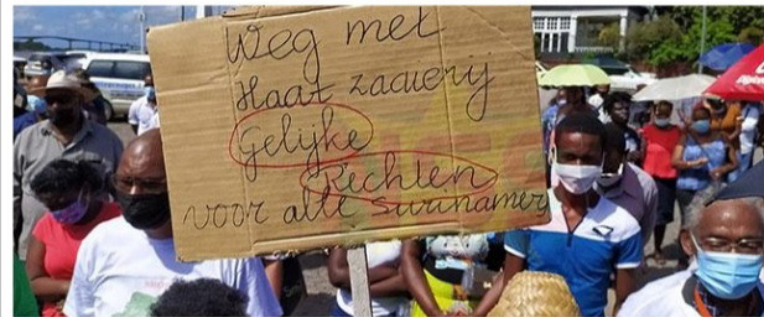 Weg met
Haat zaaierij
Gelijke
Rechten
voor alle Surinamers